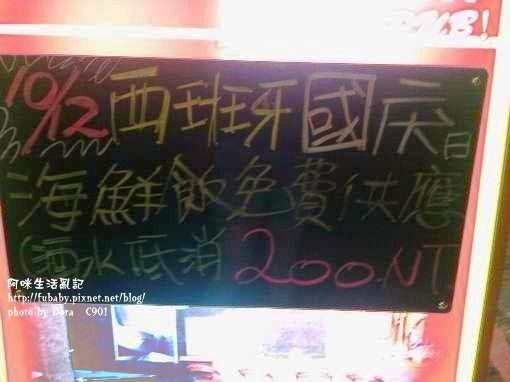 PUB!
10/12 西班牙國庆日
海鮮飯免費供應
(酒水低消 200.NT
阿咪生活亂記
http://fubaby.pixnet.net/blog/
photo by Dora C901